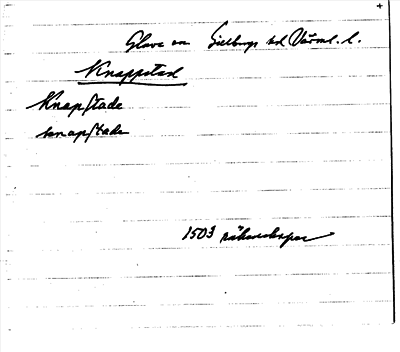 Glava sn Gillbergs hd Värml. l.
Knappstad
Knapstade
knapstade
1503 räkenskaper